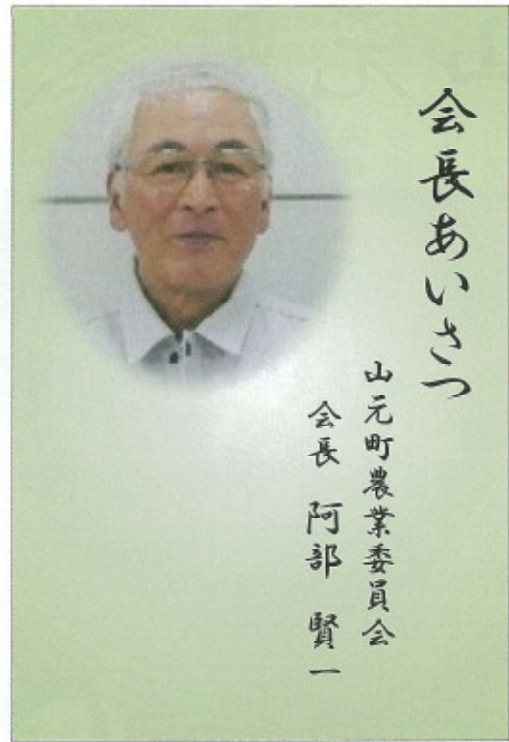 会長あいさつ
山元町農業委員会
会長 阿部 賢一